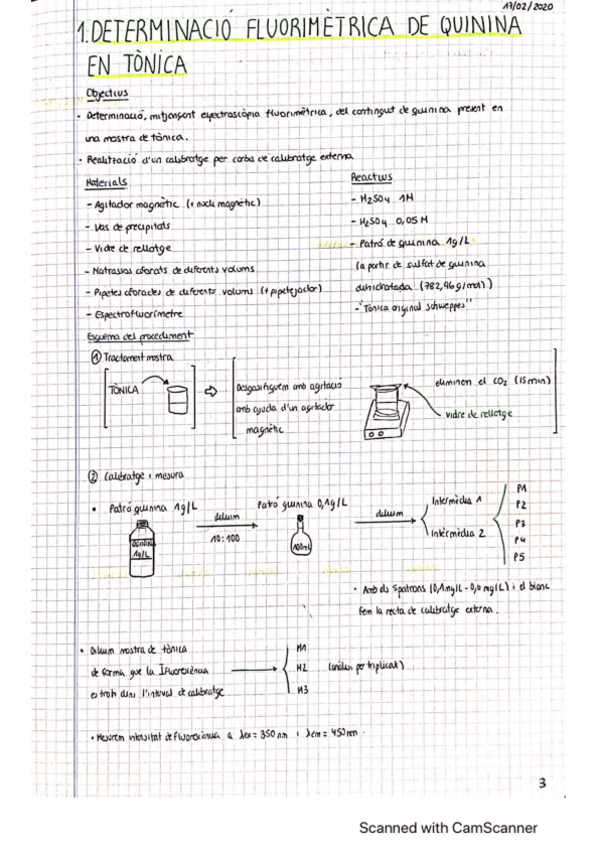 17/02/2020
1. DETERMINACIÓ FLUORIMÈTRICA DE QUININA
EN TÒNICA
Objectius
· Determinació, mitjançant espectroscòpia fluorimètrica, del contingut de quinina present en
una mostra de tònica.
· Realització d'un calibratge per corba de calibratge externa
Materials
- Agitador magnètic (+ nucli magnètic)
- Vas de precipitats
- Vidre de rellotge
- Matrassos aforats de diferents volums
- Pipetes aforades de diferents volums (+ pipetejador)
- Espectrofluorímetre
Reactius
- H2SO4 1M
- H2SO4 0,05 M
- Patró de quinina 1g/L
(a partir de sulfat de quinina
dihidratada (782,96 g/mol))
- "Tònica original schweppes"
Esquema del procediment
① Tractament mostra
TÒNICA
Desgasifiquem amb agitació
amb ajuda d'un agitador
magnètic
eliminen el CO2 (15min)
vidre de rellotge
② Calibratge i mesura
· Patró quinina 1g/L
QUININA
1g/L
diluim
10:100
Patró quinina 0,1g/L
100mL
diluim
Intermèdia 1
Intermèdia 2
P1
P2
P3
P4
P5
· Amb els 5 patrons (0,1 mg/L - mg/L) i el blanc
fem la recta de calibratge externa.
· Diluim mostra de tònica
de forma que la Ifluorescència
es trobi dins l'interval de calibratge
M1
M2
M3
(anàlisi per triplicat)
· Mesurem intensitat de fluorescència a λex = 350 nm i λem = 450nm.
3
Scanned with CamScanner